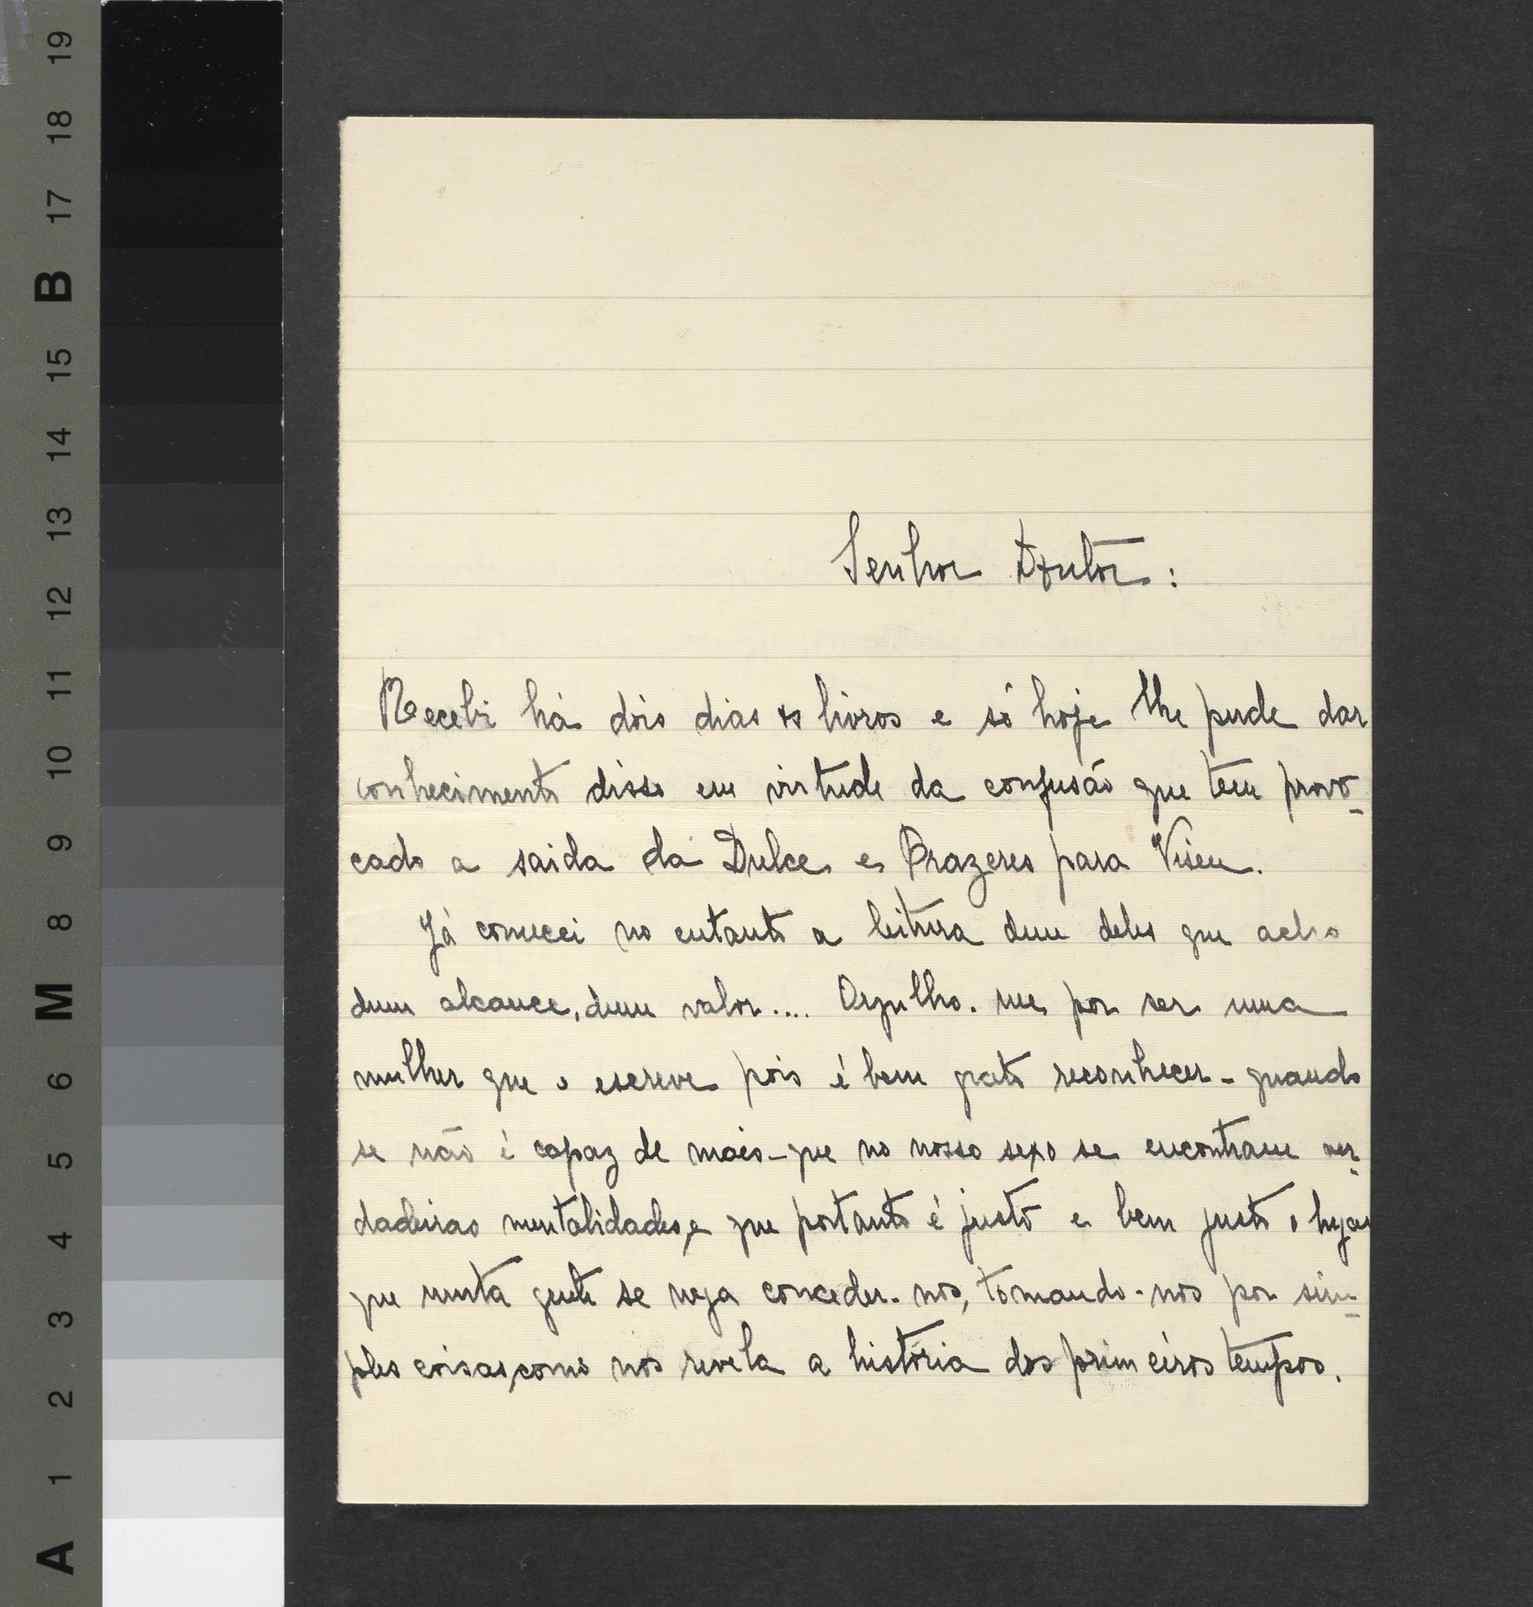 19
18
17
B
15
14
13
12
11
10
9
8
M
6
5
4
3
2
1
A
Senhor Doutor:
Recebi há dois dias os livros e só hoje lhe pude dar
conhecimento disso em virtude da confusão que tem provo-
cado a saida da Dulce e Prazeres para Viseu.
Já comecei no entanto a leitura dum deles que acho
dum alcance, dum valor.... Orgulho-me por ser uma
mulher que o escreve pois é bem grato reconhecer - quando
se não é capaz de mais - que no nosso sexo se encontram ver-
dadeiras mentalidades, e que portanto é justo e bem justo o lugar
que muita gente se nega conceder-nos, tomando-nos por sim-
ples coisas, como nos revela a história dos primeiros tempos.